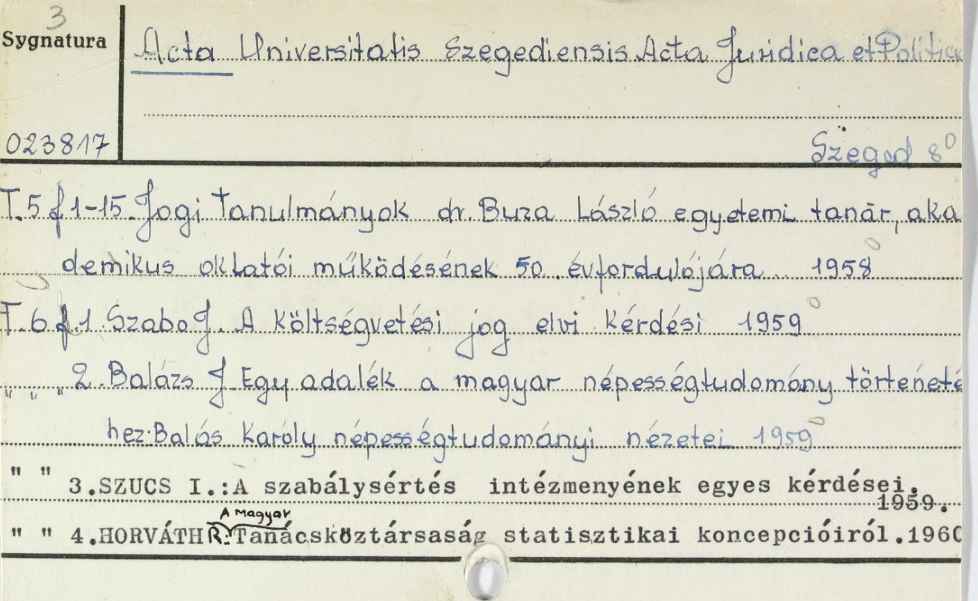 3
Sygnatura
Acta Universitatis Szegediensis Acta Juridica et Politica
023817
Szeged 8°
T.5 f 1-15. Jogi Tanulmányok dr. Buza László egyetemi tanár, aka
demikus oktatói működésének 50 évfordulójára 1958
T.6 f.1. Szabo J. A költségvetési jog elvi kérdési 1959
" " " 2. Balázs J Egy adalék a magyar népességtudomány történeté
hez. Balás Karoly népességtudományi nézetei 1959
" " 3.SZUCS I.:A szabálysértés intézményének egyes kérdései.
1959.
A magyar
" " 4.HORVÁTH R.:Tanácsköztársaság statisztikai koncepcióiról.1960